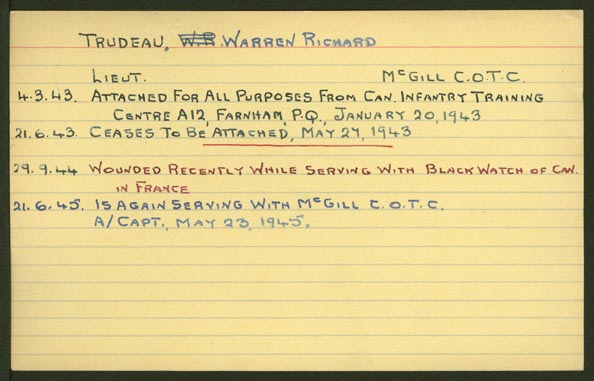 TRUDEAU, W.R. WARREN RICHARD
LIEUT. McGILL C.O.T.C.
4.3.43. ATTACHED FOR ALL PURPOSES FROM CAN. INFANTRY TRAINING
CENTRE A12, FARNHAM, P.Q., JANUARY 20, 1943
21.6.43. CEASES TO BE ATTACHED, MAY 27, 1943
29.9.44 WOUNDED RECENTLY WHILE SERVING WITH BLACK WATCH OF CAN.
IN FRANCE
21.6.45. IS AGAIN SERVING WITH McGILL C.O.T.C.
A/CAPT., MAY 23, 1945.